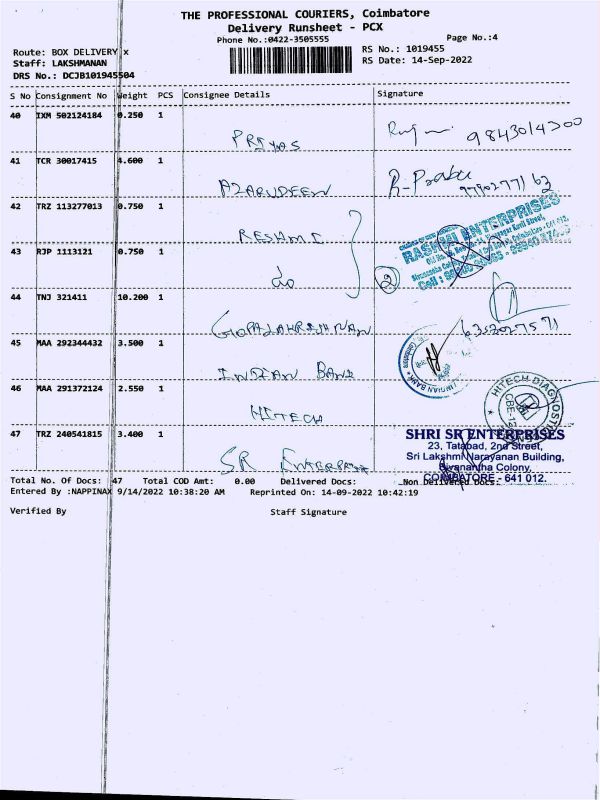 THE PROFESSIONAL COURIERS, Coimbatore
Delivery Runsheet - PCX
Phone No.:0422-3505555
Page No.:4
Route: BOX DELIVERY x
Staff: LAKSHMANAN
DRS No.: DCJB101945504
RS No.: 1019455
RS Date: 14-Sep-2022
S No Consignment No Weight PCS Consignee Details Signature
40 IXM 502124184 0.250 1
PRIYAS 9843014300
41 TCR 30017415 4.600 1
AZARUDEEN R-Prabu
42 TRZ 113277013 0.750 1
RESHMI
RASHMI ENTERPRISES
43 RJP 1113121 0.750 1
do 2
44 TNJ 321411 10.200 1
GOPALAKRISHNAN 6352027571
45 MAA 292344432 3.500 1
INDIAN BANK
INDIAN BANK
46 MAA 291372124 2.550 1
HITECH
HITECH DIAGNOSTIC
47 TRZ 240541815 3.400 1
SR ENTERPRISE
SHRI SR ENTERPRISES
23, Tatabad, 2nd Street,
Sri Lakshmi Narayanan Building,
Sivanantha Colony,
COIMBATORE - 641 012.
Total No. Of Docs: 47 Total COD Amt: 0.00 Delivered Docs: Non Delivered Docs:
Entered By :NAPPINAX 9/14/2022 10:38:20 AM Reprinted On: 14-09-2022 10:42:19
Verified By Staff Signature